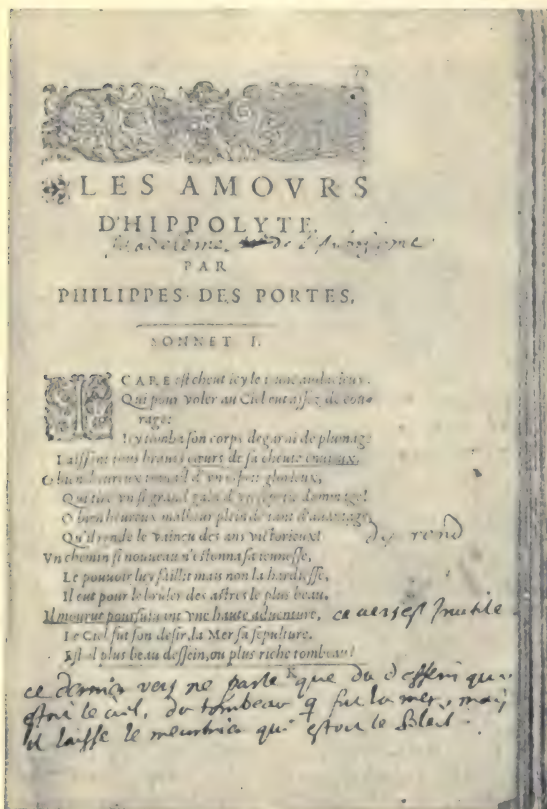 LES AMOVRS
D'HIPPOLYTE.
PAR
PHILIPPES DES PORTES.
SONNET I.
ICARE est cheut icy le ieune audacieux,
Qui pour voler au Ciel eut assez de cou-
rage:
Icy tomba son corps degarni de plumage
Laissant tous braues cœurs de sa cheute enuieux.
O bien-heureux trauail d'vn esprit glorieux,
Qui tire vn si grand gain d'vn si petit dommage!
O bien heureux malheur plein de tant d'auantage,
Qu'il rende le vaincu des ans victorieux!
Vn chemin si nouueau n'estonna sa ieunesse,
Le pouuoir luy faillit mais non la hardiesse,
Il eut pour le bruler des astres le plus beau.
Il mourut poursuiuant vne haute aduenture, ce vers est Inutile.
Le Ciel fut son desir, la Mer sa sepulture.
Est-il plus beau dessein, ou plus riche tombeau?
ce dernier vers ne parle que du dessein qui
estoit le ciel, du tombeau q fut la mer, mais
il laisse le meurtrier qui estoit le Soleil.